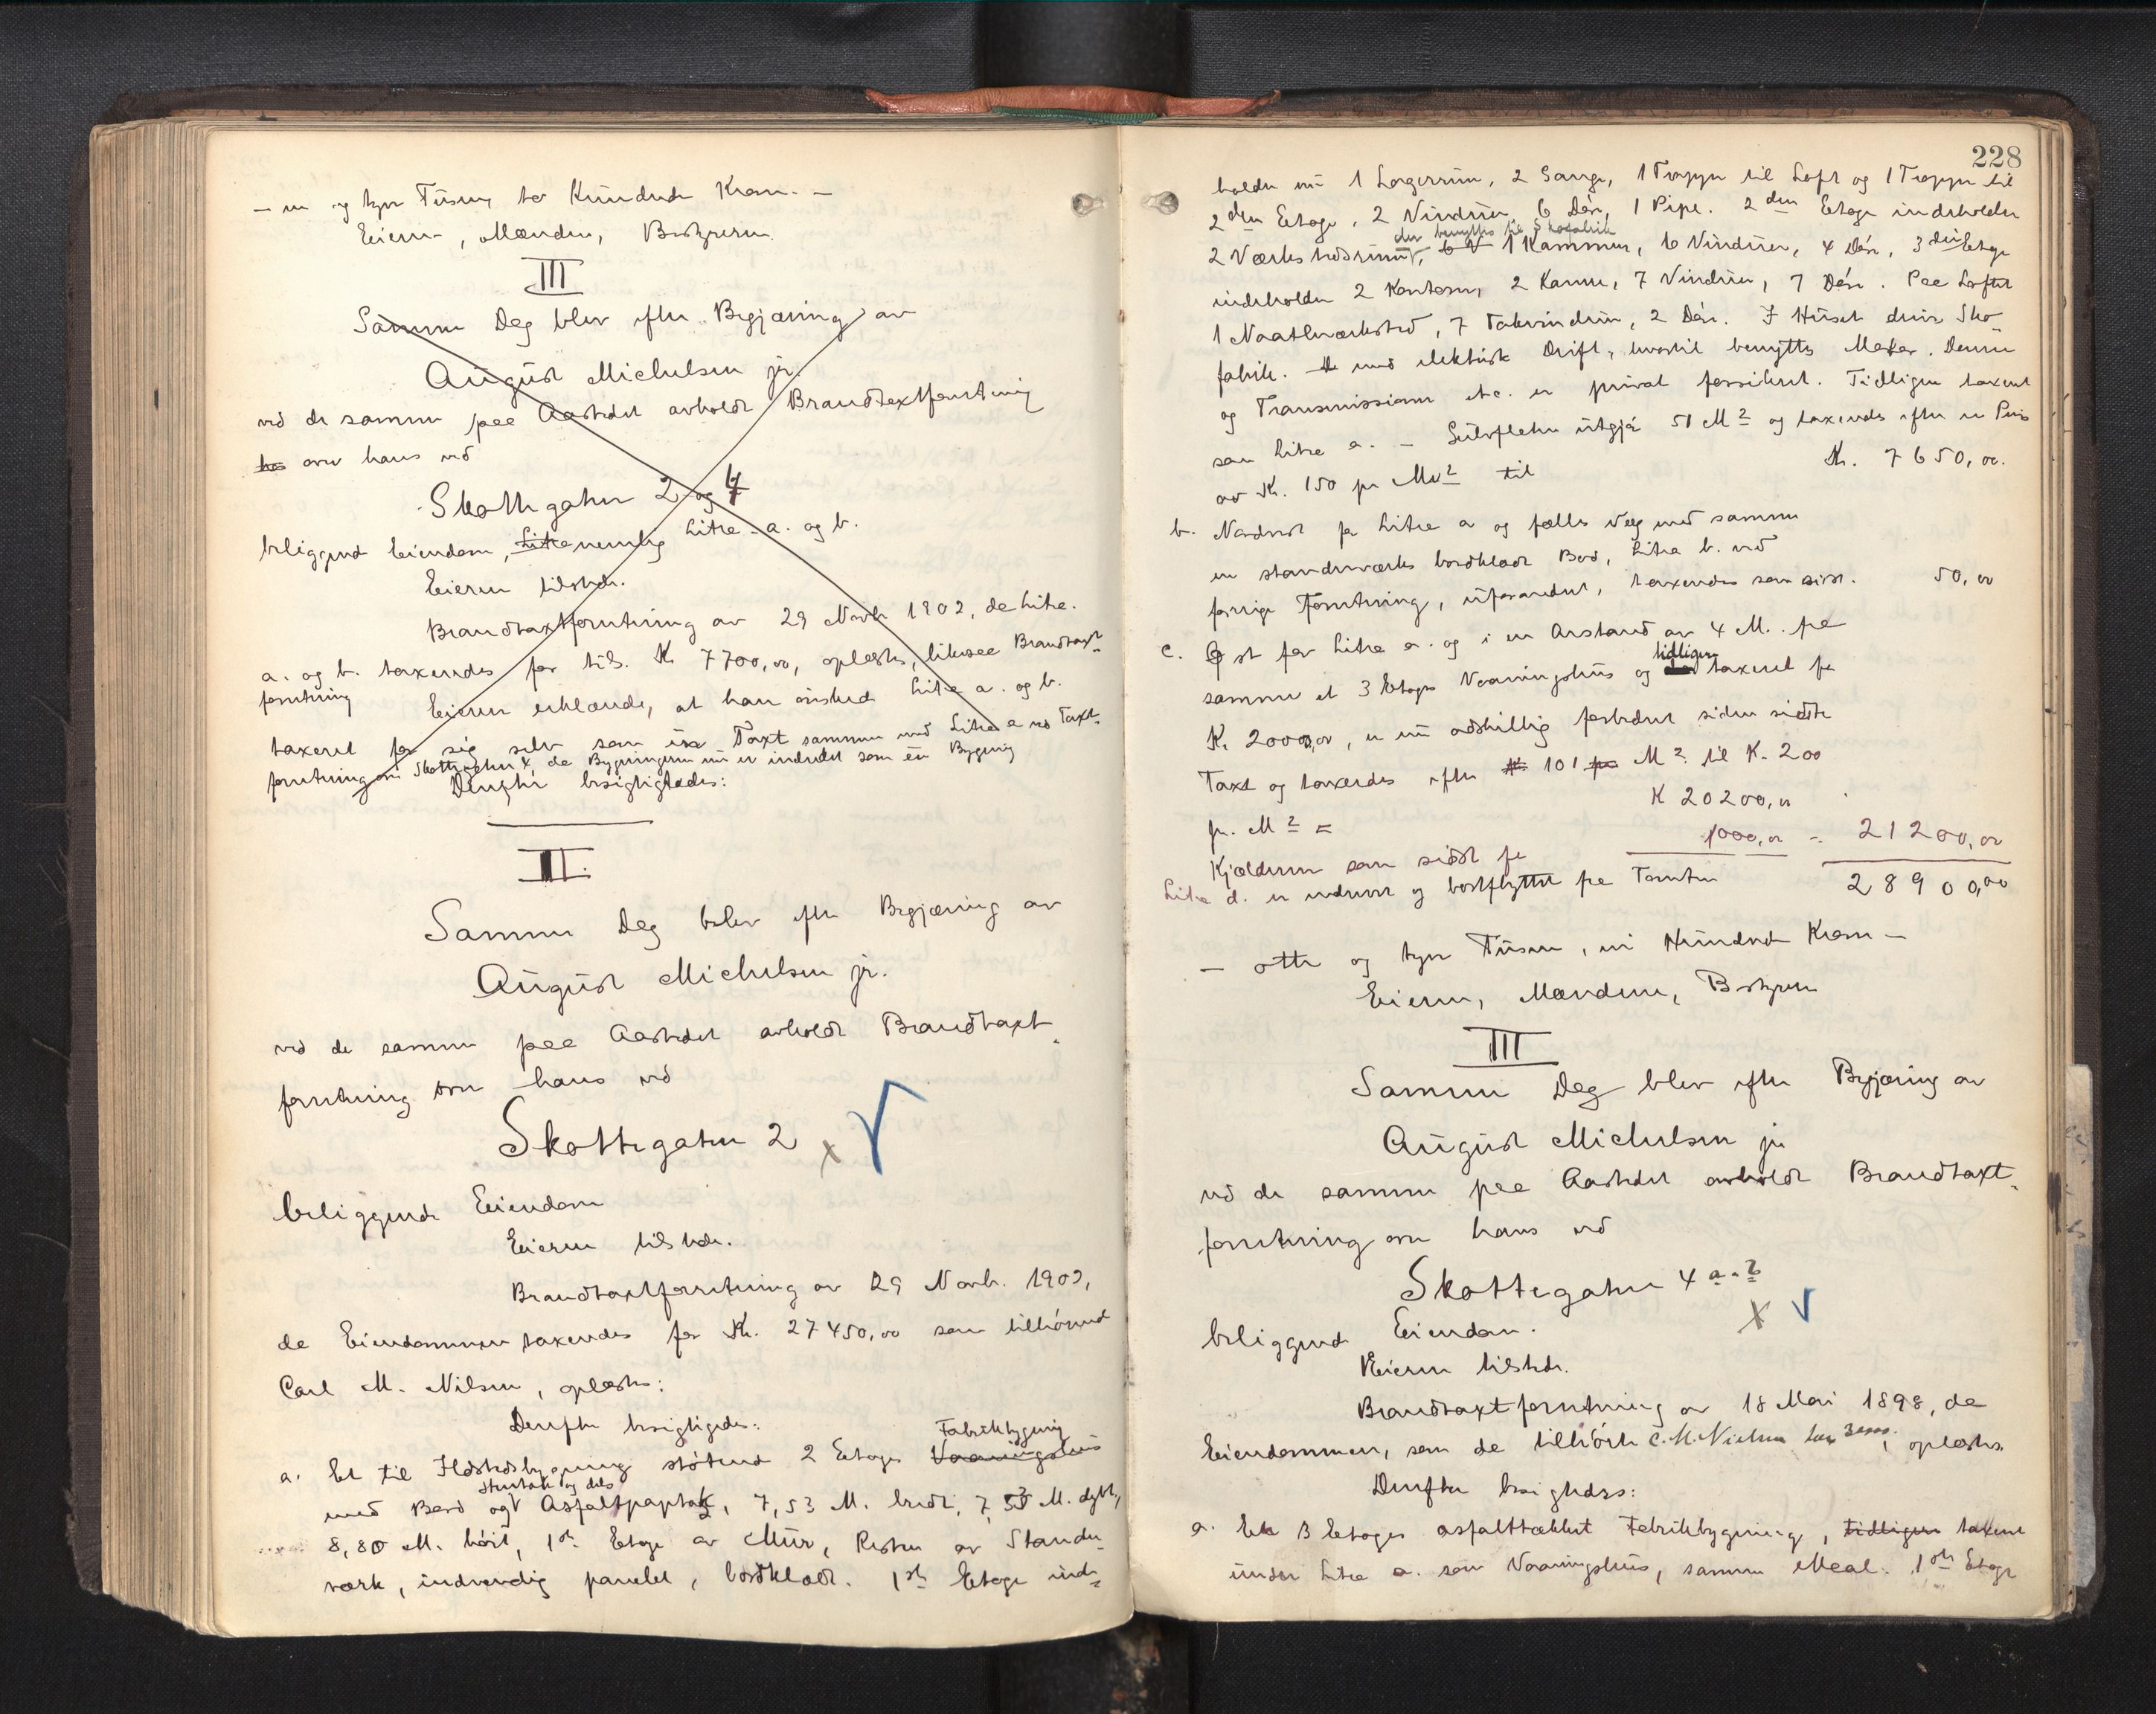 — en og tyve Tusen, to Hundrede Kron. —
Eieren, Mændene, Bestyreren
III
Samme Dag blev efter Begjæring av
August Michelsen jr.
ved de samme paa Aastedet avholdt Brandtaxtforretning
over hans ved
Skottegaten 2 og 4
beliggende Eiendom, Litra nemlig Litra a. og b.
Eieren tilstede.
Brandtaxtforretning av 29 Novbr 1902, da Litra.
a. og b. taxeredes for tils. K 7700,00, oplæstes, likesaa Brandtaxt-
forretning
Eieren erklærede, at han ønsked Litra a. og b.
taxeret for sig selv som en Taxt sammen med Litra a ved Taxt-
forretning om Skottegaten 4, da Bygningerne nu er indredet som en Bygning
Derefter besigtigedes:
II.
Samme Dag blev efter Begjæring av
August Michelsen jr.
ved de samme paa Aastedet avholdt Brandtaxt-
forretning over hans ved
Skottegaten 2
beliggende Eiendom
Eieren tilstede.
Brandtaxtforretning av 29 Novb. 1902,
da Eiendommen taxeredes for Kr. 27450,00 som tilhørende
Carl M. Nilsen, oplæstes:
Derefter besigtigedes:
Fabrikbygning
a. Et til Ildstedsbygning støtende 2 Etages Vaaningshus
med Bord og Asfaltpaptak, 7,53 M. bredt, 7,53 M. dybt,
8,80 M. høit, 1ste Etage av Mur, Resten av Stander-
værk, indvendig panelet, bordklædt. 1ste Etage inde-
228
holder nu 1 Lagerrum, 2 Gange, 1 Trappe til Loft og 1 Trappe til
2den Etage, 2 Vinduer, 6 Døre, 1 Pipe. 2den Etage indeholder
der benyttes til Skofabrik
2 Værkstedsrum, 6 V 1 Kammer, 6 Vinduer, 4 Døre, 3die Etage
indeholder 2 Kontorer, 2 Kamre, 7 Vinduer, 7 Døre. Paa Loftet
1 Naatleværksted, 7 Takvinduer, 2 Døre. I Huset drives Sko-
fabrik. med elektrisk Drift, hvortil benyttes Motor. Denne
og Transmissioner etc. er privat forsikret. Tidligere taxeret
som Litra a. — Gulvflaten utgjør 51 M2 og taxeredes efter en Pris
av Kr. 150 pr M2 til Kr. 7650,00.
b. Nordvest for Litra a og fælles Væg med samme
en standerværks bordklædt Bod, Litra b. ved
forrige Forretning, uforandret, taxeredes som sidst. 50,00
c. Øst for Litra a. og i en Avstand av 4 M. fra
tidligere
samme et 3 Etages Vaaningshus og taxeret for
K. 20000,00, er nu adskillig forbedret siden sidste
Taxt og taxeredes efter 101 M2 til K. 200
pr. M2 = K 20200,00
Kjælderen som sidst for 1000,00 - 21200,00
Litra d. er nedrevet og bortflyttet fra Tomten 28900,00
— otte og tyve Tusen, ni Hundrede Kroner —
Eieren, Mændene, Bestyreren
III
Samme Dag blev efter Begjæring av
August Michelsen jr
ved de samme paa Aastedet avholdt Brandtaxt-
forretning over hans ved
Skottegaten 4 a-b
beliggende Eiendom.
Eieren tilstede.
Brandtaxtforretning av 18 Mai 1898, da
Eiendommen, som da tilhørte C. M. Nielsen, oplæstes.
Derefter besigtedes:
a. En 3 Etages asfalttækket Fabrikbygning, tidligere taxeret
under Litra a. som Vaaningshus, samme Maal. 1ste Etage